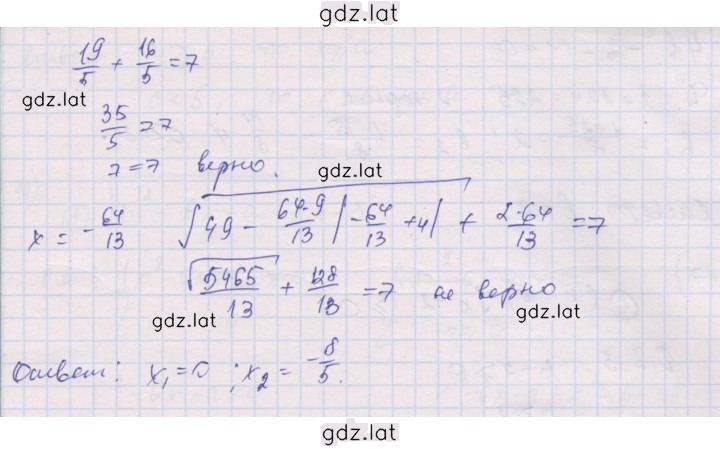 gdz.lat
19/5 + 16/5 = 7
gdz.lat
35/5 = 7
7 = 7 верно.
gdz.lat
x = -64/13 √(49 - 64·9/13 |-64/13 + 4|) + 2·64/13 = 7
√5465/13 + 128/13 = 7 не верно
gdz.lat
gdz.lat
Ответ: x₁ = 0 ; x₂ = -8/5.
gdz.lat